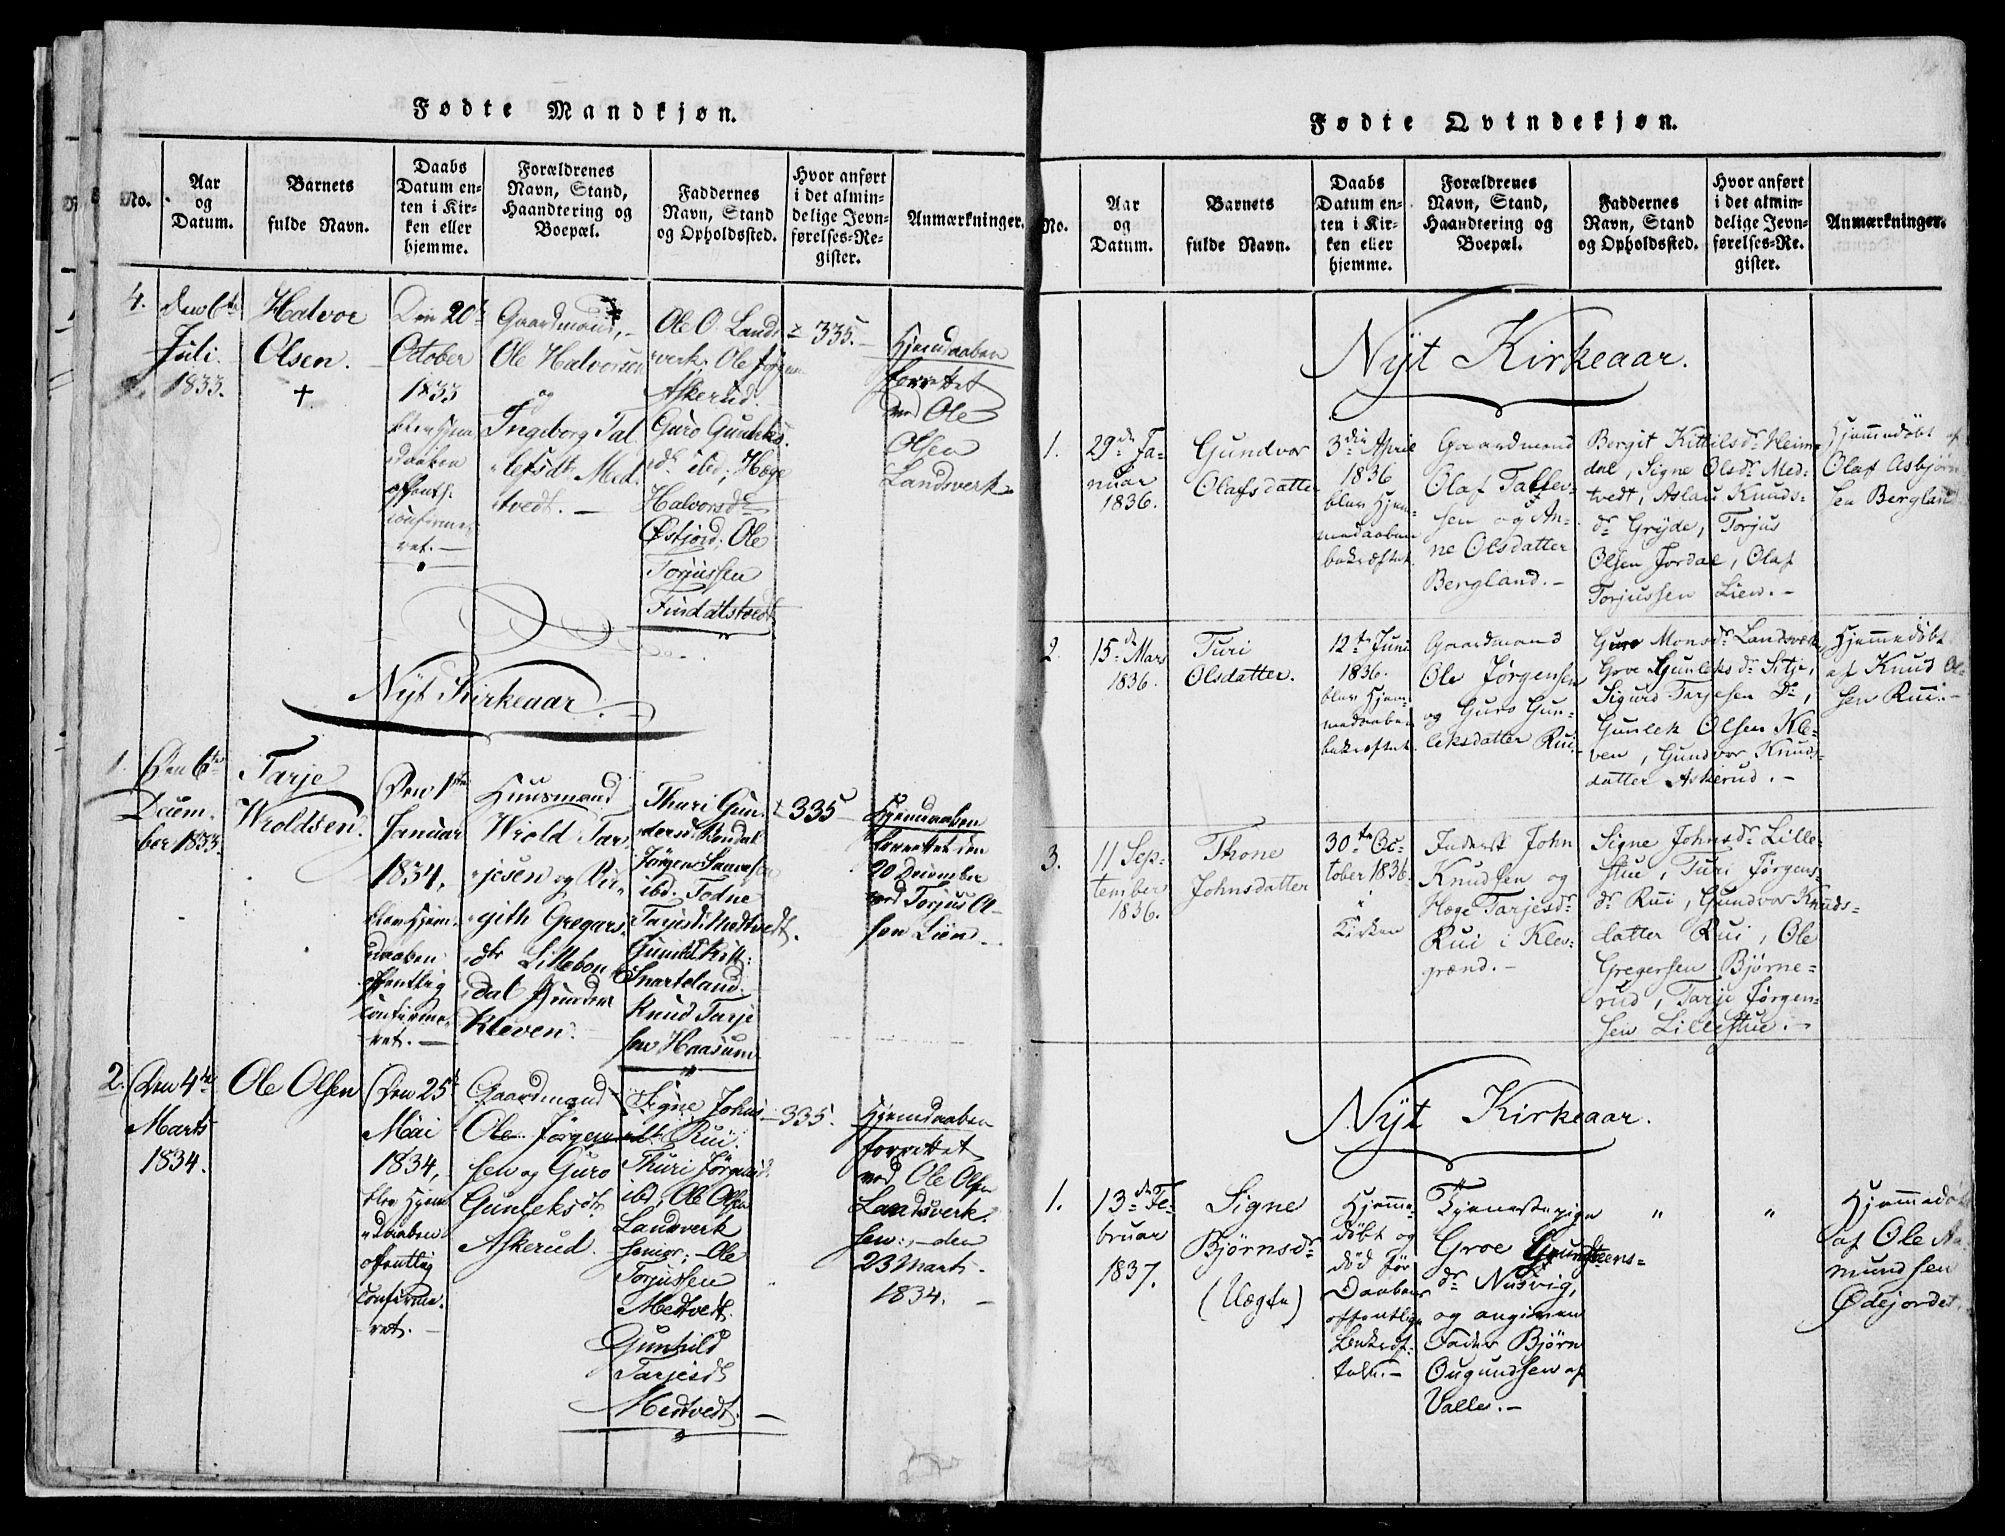 Fødte Mandkjøn.
No.
Aar
og
Datum.
Barnets
fulde Navn.
Daabs
Datum en-
ten i Kir-
ken eller
hjemme.
Forældrenes
Navn, Stand,
Haandtering og
Boepæl.
Faddernes
Navn, Stand
og Opholdssted.
Hvor anført
i det almin-
delige Jevn-
førelses-Re-
gister.
Anmærkninger.
4.
Den 6te
Juli
1833.
Halvor
Olsen.
+
Den 20de
October
1833
blev Hjem
daaben
offentl.
confirme-
ret. —
Gaardmand,
Ole Halvorsen
og
Ingeborg Tal
lefsdtr Med
tvedt. —
Ole O. Lands
verk, Ole Jørgen
Askerud.
Guro Gunleks.
dr ibid, Hæge
Halvorsdr
Østjord, Ole
Torjussen
Findalstvedt
335.
Hjemdaaben
forrettet
ved Ole
Olsen
Landsverk
Nyt Kirkeaar.
1.
Den 6te
Decem-
ber 1833.
Tarje
Wroldsen.
Den 1ste
Januar
1834,
blev Hjem-
daaben
offentlig
confirme-
ret. —
Huusmand
Wrold Tar-
jesen og Bir-
gith Gregars-
dtr Littebon
dal under
Kleven.
Thuri Gun-
Jørgen
ibd. Todne
Tarjesdr. Medtvedt.
Gunild Kitt:
Snarteland.
Knud Tarje
sen Haasum
335
Hjemdaaben
forrettet den
20 December
ved Torjus Ol-
sen Lien.
2.
Den 4de
Marts
1834.
Ole Olsen
Den 25de
Mai
1834,
blev Hjem
daaben
offentlig
confirme-
ret. —
Gaardmand
Ole Jørgen
sen og Guro
Gunleksdtr
Askerud.
Signe Johns
dtr Rui.
Thuri Jørgensd.
ibd, Ole Olsen
Landsverk
senior, Ole
Torjussen
Medtvedt.
Gunhild
Tarjesdr
Medtvedt. —
335.
Hjemdaaben
forrettet
ved Ole Olsen
Landsverk
sen:, — den
23 Marts
1834. —
Fødte Qvindekjøn.
No.
Aar
og
Datum.
Barnets
fulde Navn.
Daabs
Datum en-
ten i Kir-
ken eller
hjemme.
Forældrenes
Navn, Stand,
Haandtering og
Boepæl.
Faddernes
Navn, Stand
og Opholdssted.
Hvor anført
i det almin-
delige Jevn-
førelses-Re-
gister.
Anmærkninger.
Nyt Kirkeaar.
1.
29de Ja-
nuar
1836.
Gundvor
Olafsdatter
3die April
1836
blev Hjem-
medaaben
bekræftet.
Gaardmand
Olaf Tallev-
sen og An-
ne Olsdatter
Bergland. —
Bergit Kittilsdr Heim-
dal, Signe Olsdr Med-
tvedt, Aslau Knuds-
dr Gryde, Torjus
Olsen Jordal, Olaf
Torjussen Lien. —
Hjemmedøbt af
Olaf Asbjørn-
sen Bergland
2.
15de Mars
1836.
Turi
Olsdatter.
12te Juni
1836.
blev Hjem-
medaaben
bekræftet.
Gaardmand
Ole Jørgensen
og Guro Gun-
leksdatter Rui. —
Guro Monsdr Landsverk,
Groe Gunleksdr Sitje,
Sigurd Tarjesen Do,
Gunlek Olsen Kle-
ven, Gundvor Knuds-
datter Askerud. —
Hjemmedøbt
af Knud Ol-
sen Rui. —
3.
11 Sep-
tember
1836.
Thone
Johnsdatter
30te Oc-
tober 1836.
i
Kirken
Inderst John
Knudsen og
Hæge Tarjesdr
Rui i Klev-
grænd. —
Signe Johnsdr Lille-
stue, Turi Jørgens-
dr Rui, Gundvor Knuds-
datter Rui, Ole
Gregersen Bjørne-
rud, Tarje Jørgen-
sen Lillestue. —
Nyt Kirkeaar.
1.
13de Fe-
bruar
1837.
Signe
Bjørnsdr
(Uægte)
Hjemme-
døbt og
død før
Daabens
offentlige
Bekræf-
telse. —
Tjenestepige
Groe Gunsteens-
dr Nusvig,
og angiven
Fader Bjørn
Ougundsen af
Valle. —
"
"
Hjemmedøbt
af Ole Aa
mundsen
Ødejordet.